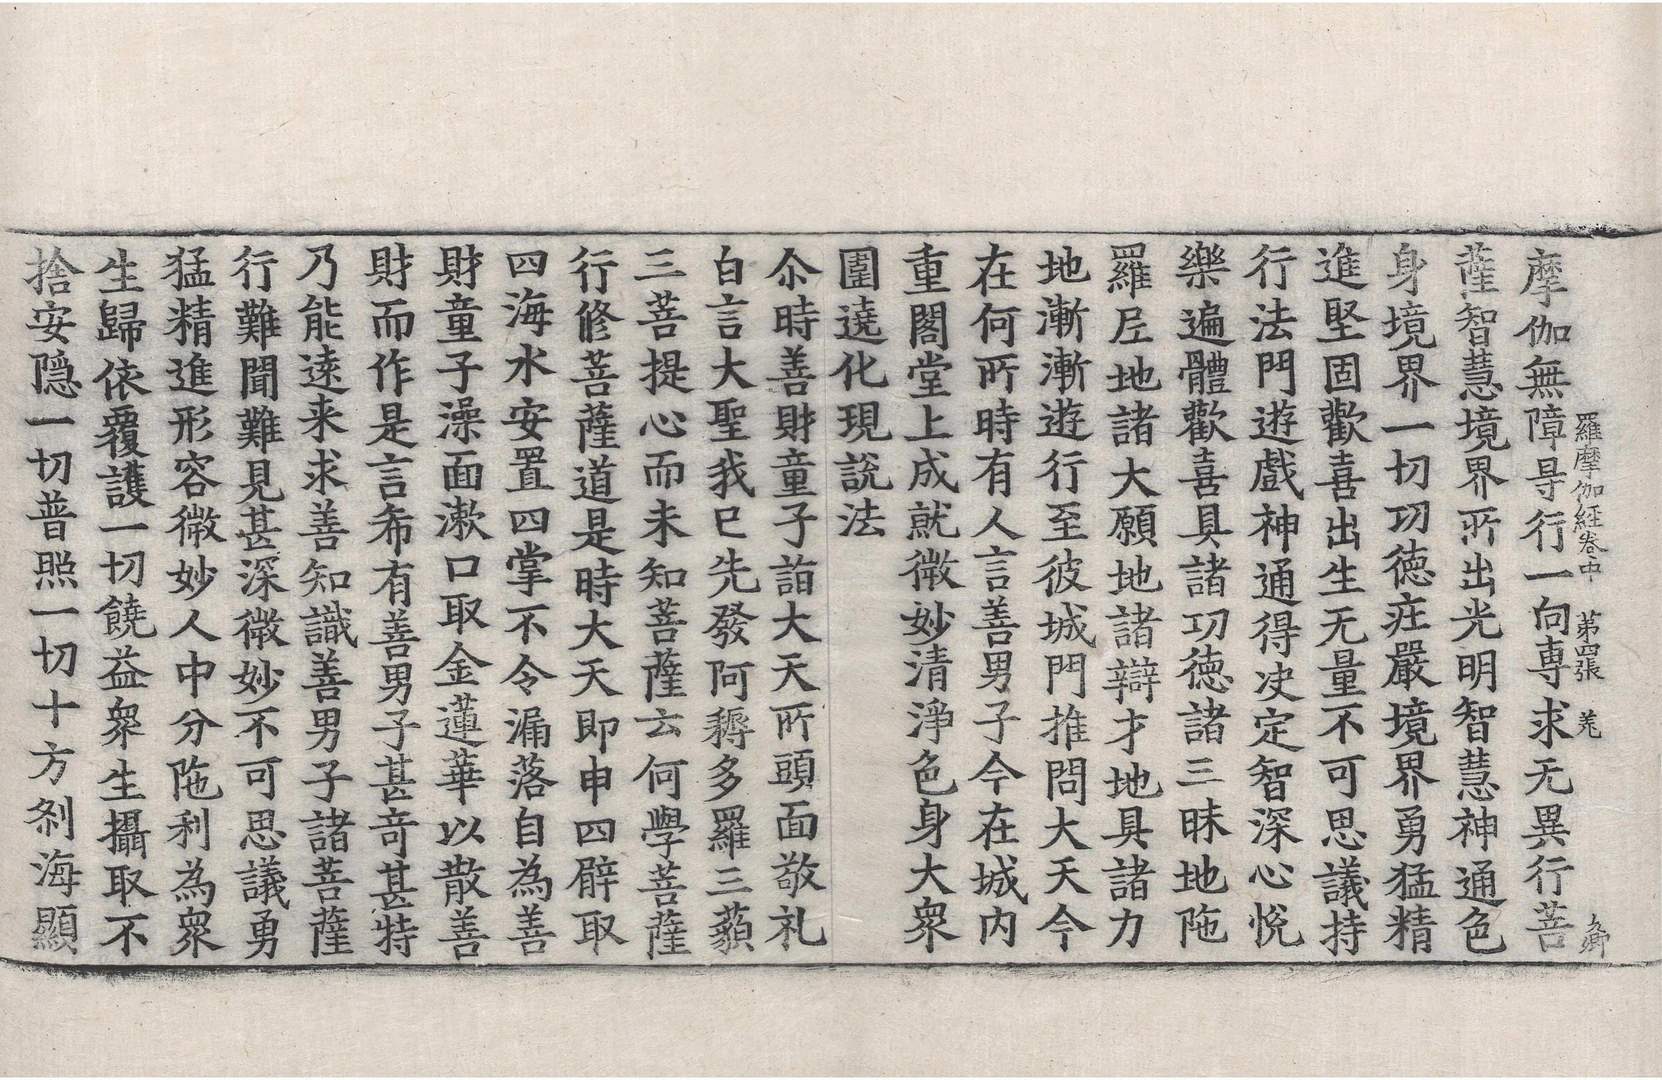 羅摩伽経卷中　第四張　羗　夊卿
摩伽無障㝵行一向専求无異行菩
薩智慧境界所出光明智慧神通色
身境界一切功徳庄嚴境界勇猛精
進堅固歡喜出生无量不可思議持
行法門遊戲神通得决定智深心悅
樂遍體歡喜具諸功徳諸三昧地陁
羅尼地諸大願地諸辯才地具諸力
地漸漸遊行至彼城門推問大天今
在何所時有人言善男子今在城内
重閣堂上成就微妙清淨色身大衆
圍遶化現説法
尒時善財童子詣大天所頭面敬礼
白言大聖我已先發阿耨多羅三藐
三菩提心而未知菩薩云何學菩薩
行修菩薩道是時大天即申四臂取
四海水安置四掌不令漏落自為善
財童子澡面漱口取金蓮華以散善
財而作是言希有善男子甚竒甚特
乃能逺来求善知識善男子諸菩薩
行難聞難見甚深微妙不可思議勇
猛精進形容微妙人中分陁利為衆
生歸依覆護一切饒益衆生攝取不
捨安隠一切普照一切十方刹海顯